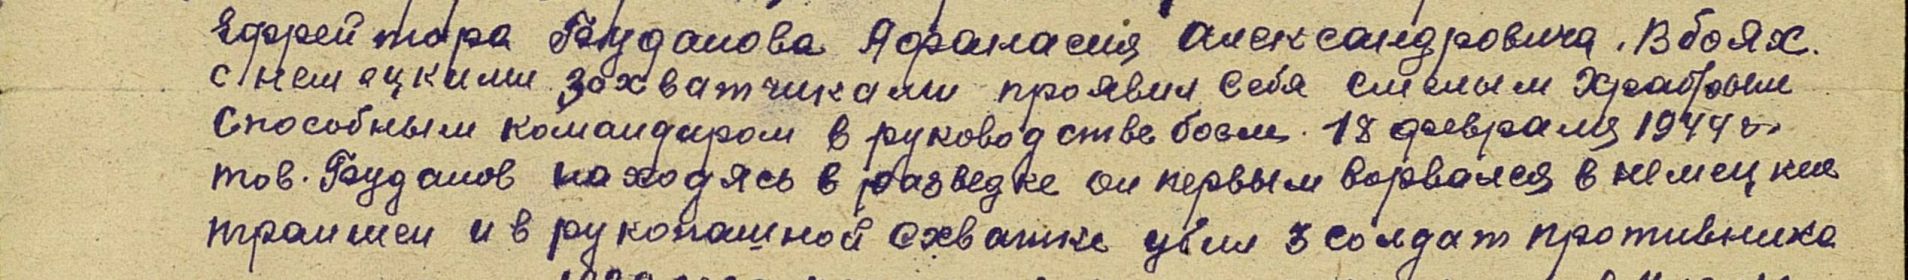 Ефрейтора Буданова Афанасия Александровича. В боях.
с немецкими зохватчиками проявил себя смелым Храбрым
Способным командиром в руководстве боем. 18 февраля 1944 г.
тов. Буданов находясь в разведке он первым ворвался в немецкие
траншеи и в рукопашной схватке убил 3 солдат противника